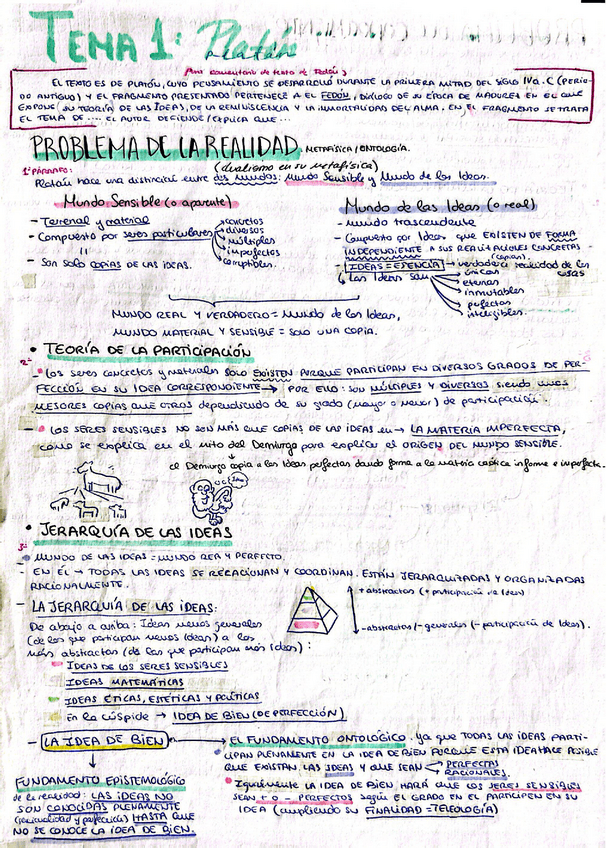 TEMA 1: Platón
(Para comentario de texto de Platón)
EL TEXTO ES DE PLATÓN, CUYO PENSAMIENTO SE DESARROLLÓ DURANTE LA PRIMERA MITAD DEL SIGLO IV a.C (PERIO-
DO ANTIGUO) Y EL FRAGMENTO PRESENTADO PERTENECE A EL FEDÓN, DIÁLOGO DE SU ÉPOCA DE MADUREZ EN EL QUE
EXPONE SU TEORÍA DE LAS IDEAS, DE LA REMINISCENCIA Y LA INMORTALIDAD DEL ALMA. EN EL FRAGMENTO SE TRATA
EL TEMA DE .... EL AUTOR DEFIENDE/EXPLICA QUE...
PROBLEMA DE LA REALIDAD. METAFÍSICA/ONTOLOGÍA.
(dualismo en su metafísica)
1º PÁRRAFO:
Platón hace una distinción entre dos mundos: Mundo Sensible y Mundo de las Ideas.
Mundo Sensible (o aparente)
- Terrenal y material
- Compuesto por seres particulares
concretos
diversos
múltiples
imperfectos
corruptibles.
- Son solo COPIAS DE LAS IDEAS.
Mundo de las Ideas (o real)
- mundo trascendente
- Compuesto por Ideas QUE EXISTEN DE FORMA
INDEPENDIENTE A SUS REALIZACIONES CONCRETAS
(copias).
- IDEAS = ESENCIA → verdadera realidad de las cosas
Las Ideas son
únicas
eternas
inmutables
perfectas
inteligibles.
MUNDO REAL Y VERDADERO = Mundo de las Ideas,
MUNDO MATERIAL Y SENSIBLE = SOLO UNA COPIA.
• TEORÍA DE LA PARTICIPACIÓN
2º
- Los seres concretos y materiales SOLO EXISTEN PORQUE PARTICIPAN EN DIVERSOS GRADOS DE PER-
FECCIÓN EN SU IDEA CORRESPONDIENTE → POR ELLO: SON MÚLTIPLES Y DIVERSOS siendo unos
MEJORES COPIAS QUE OTROS dependiendo de su grado (mayor o menor) de participación.
- LOS SERES SENSIBLES NO SON MÁS QUE COPIAS DE LAS IDEAS en → LA MATERIA IMPERFECTA,
como se explica en el mito del Demiurgo para explicar el ORIGEN DEL MUNDO SENSIBLE.
el Demiurgo copia a las Ideas perfectas dando forma a la materia caótica informe e imperfecta.
• JERARQUÍA DE LAS IDEAS
3º
MUNDO DE LAS IDEAS = MUNDO REAL Y PERFECTO.
- EN ÉL → TODAS LAS IDEAS SE RELACIONAN Y COORDINAN. ESTÁN JERARQUIZADAS Y ORGANIZADAS
RACIONALMENTE.
- LA JERARQUÍA DE LAS IDEAS:
De abajo a arriba: Ideas menos generales
(de las que participan menos Ideas) a las
más abstractas (de las que participan más Ideas):
+ abstractas (+ participación de Ideas)
- abstractas/- generales (- participación de Ideas).
IDEAS DE LOS SERES SENSIBLES
IDEAS MATEMÁTICAS
IDEAS ÉTICAS, ESTÉTICAS Y POLÍTICAS
En la cúspide → IDEA DE BIEN (DE PERFECCIÓN)
- LA IDEA DE BIEN
EL FUNDAMENTO ONTOLÓGICO. ya que TODAS LAS IDEAS PARTI-
CIPAN PLENAMENTE EN LA IDEA DE BIEN PORQUE ESTA IDEA HACE POSIBLE
QUE EXISTAN LAS IDEAS Y QUE SEAN
PERFECTAS
RACIONALES.
Igualmente LA IDEA DE BIEN HARÁ QUE LOS SERES SENSIBLES
SEAN + O - PERFECTOS según EL GRADO EN EL PARTICIPEN EN SU
IDEA (cumpliendo su FINALIDAD = TELEOLOGÍA)
FUNDAMENTO EPISTEMOLÓGICO
de la realidad: LAS IDEAS NO
SON CONOCIDAS PLENAMENTE
(racionalidad y perfección) HASTA QUE
NO SE CONOCE LA IDEA DE BIEN.